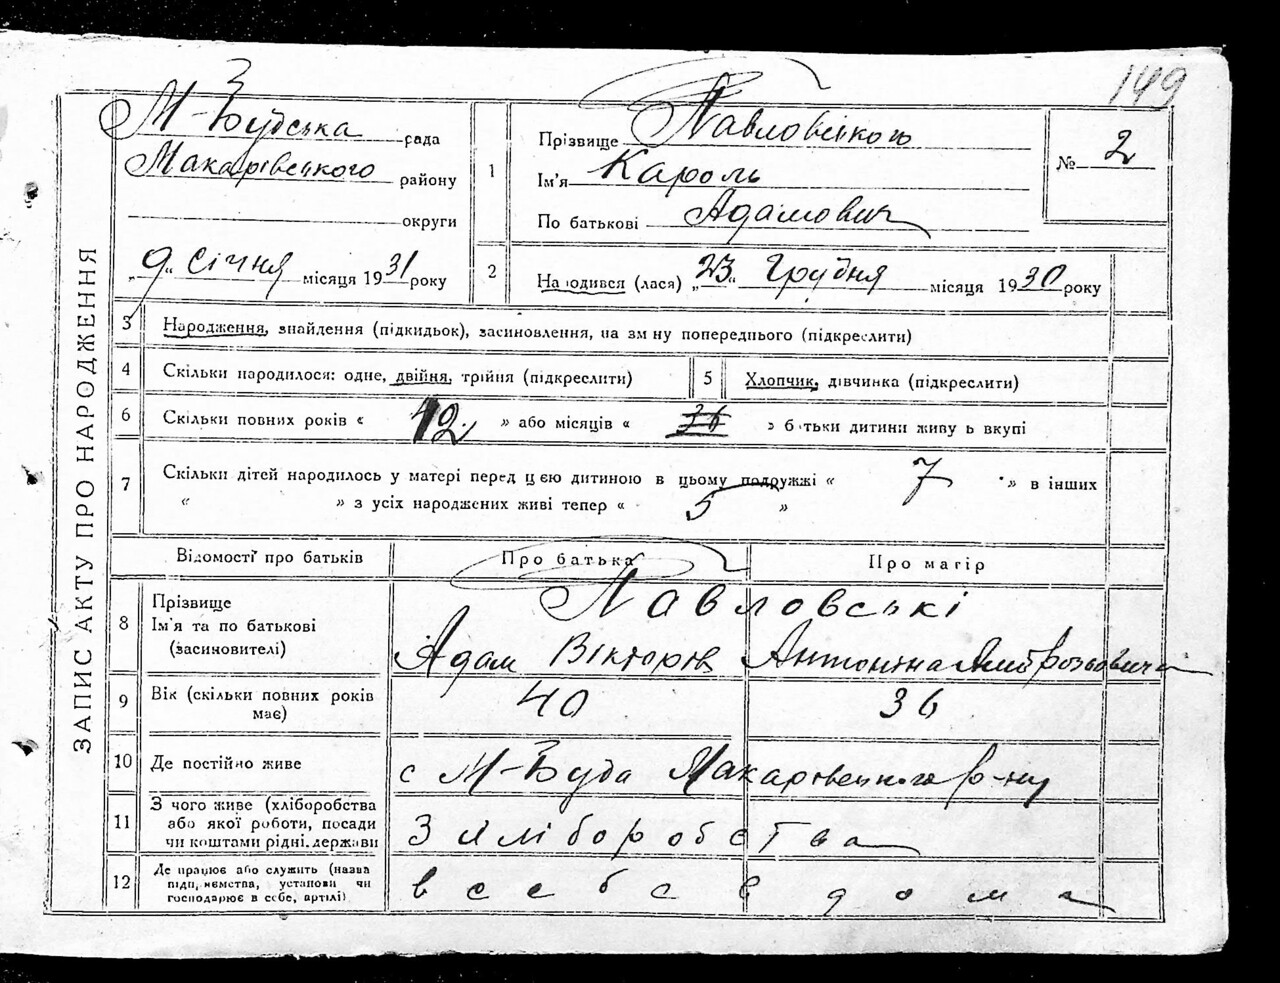 149
М-Будська рада
Макарівського району
округи
„9“ січня місяця 1931 року
1
Прізвище Павловського
Ім'я Кароль
По батькові Адамович
№ 2
2
Народився (лася) „23“ Грудня місяця 1930 року
ЗАПИС АКТУ ПРО НАРОДЖЕННЯ
3 Народження, знайдення (підкидьок), засиновлення, на зміну попереднього (підкреслити)
4 Скільки народилося: одне, двійня, трійня (підкреслити)
5 Хлопчик, дівчинка (підкреслити)
6 Скільки повних років « 12 » або місяців « 36 » батьки дитини живуть вкупі
7 Скільки дітей народилось у матері перед цією дитиною в цьому подружжі « 7 » в інших
« » з усіх народжених живі тепер « 5 »
Відомості про батьків
Про батька
Про матір
8 Прізвище
Ім'я та по батькові
(засиновителі)
Павловські
Адам Вікторів
Антоніна Амброзьовича
9 Вік (скільки повних років має)
40
36
10 Де постійно живе
с М-Буда Макарівського р-ну
11 З чого живе (хліборобства
або якої роботи, посади
чи коштами рідні, держави
З хліборобства
12 Де працює або служить (назва
підприємства, установи чи
господарює в себе, артілі)
в себе вдома